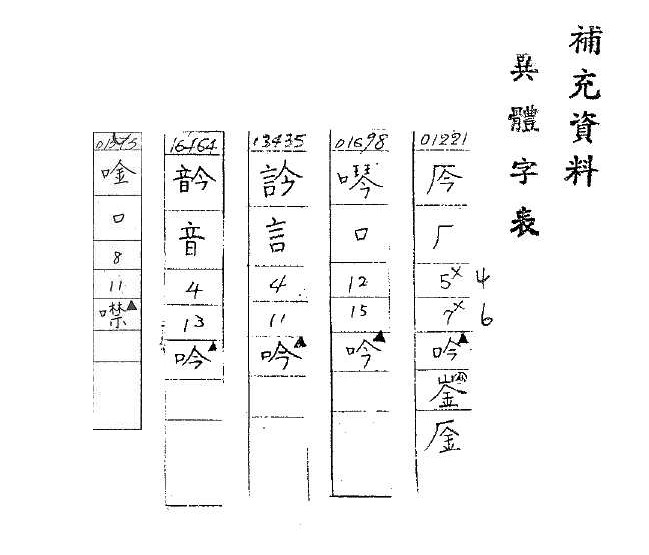 補充資料
異體字表
01221
厃
厂
5× 4
7× 6
吟▲
崟
厜
01698
㗲
口
12
15
吟▲
13435
訡
言
4
11
吟▲
16464
䪩
音
4
13
吟▲
唫
口
8
11
噤▲